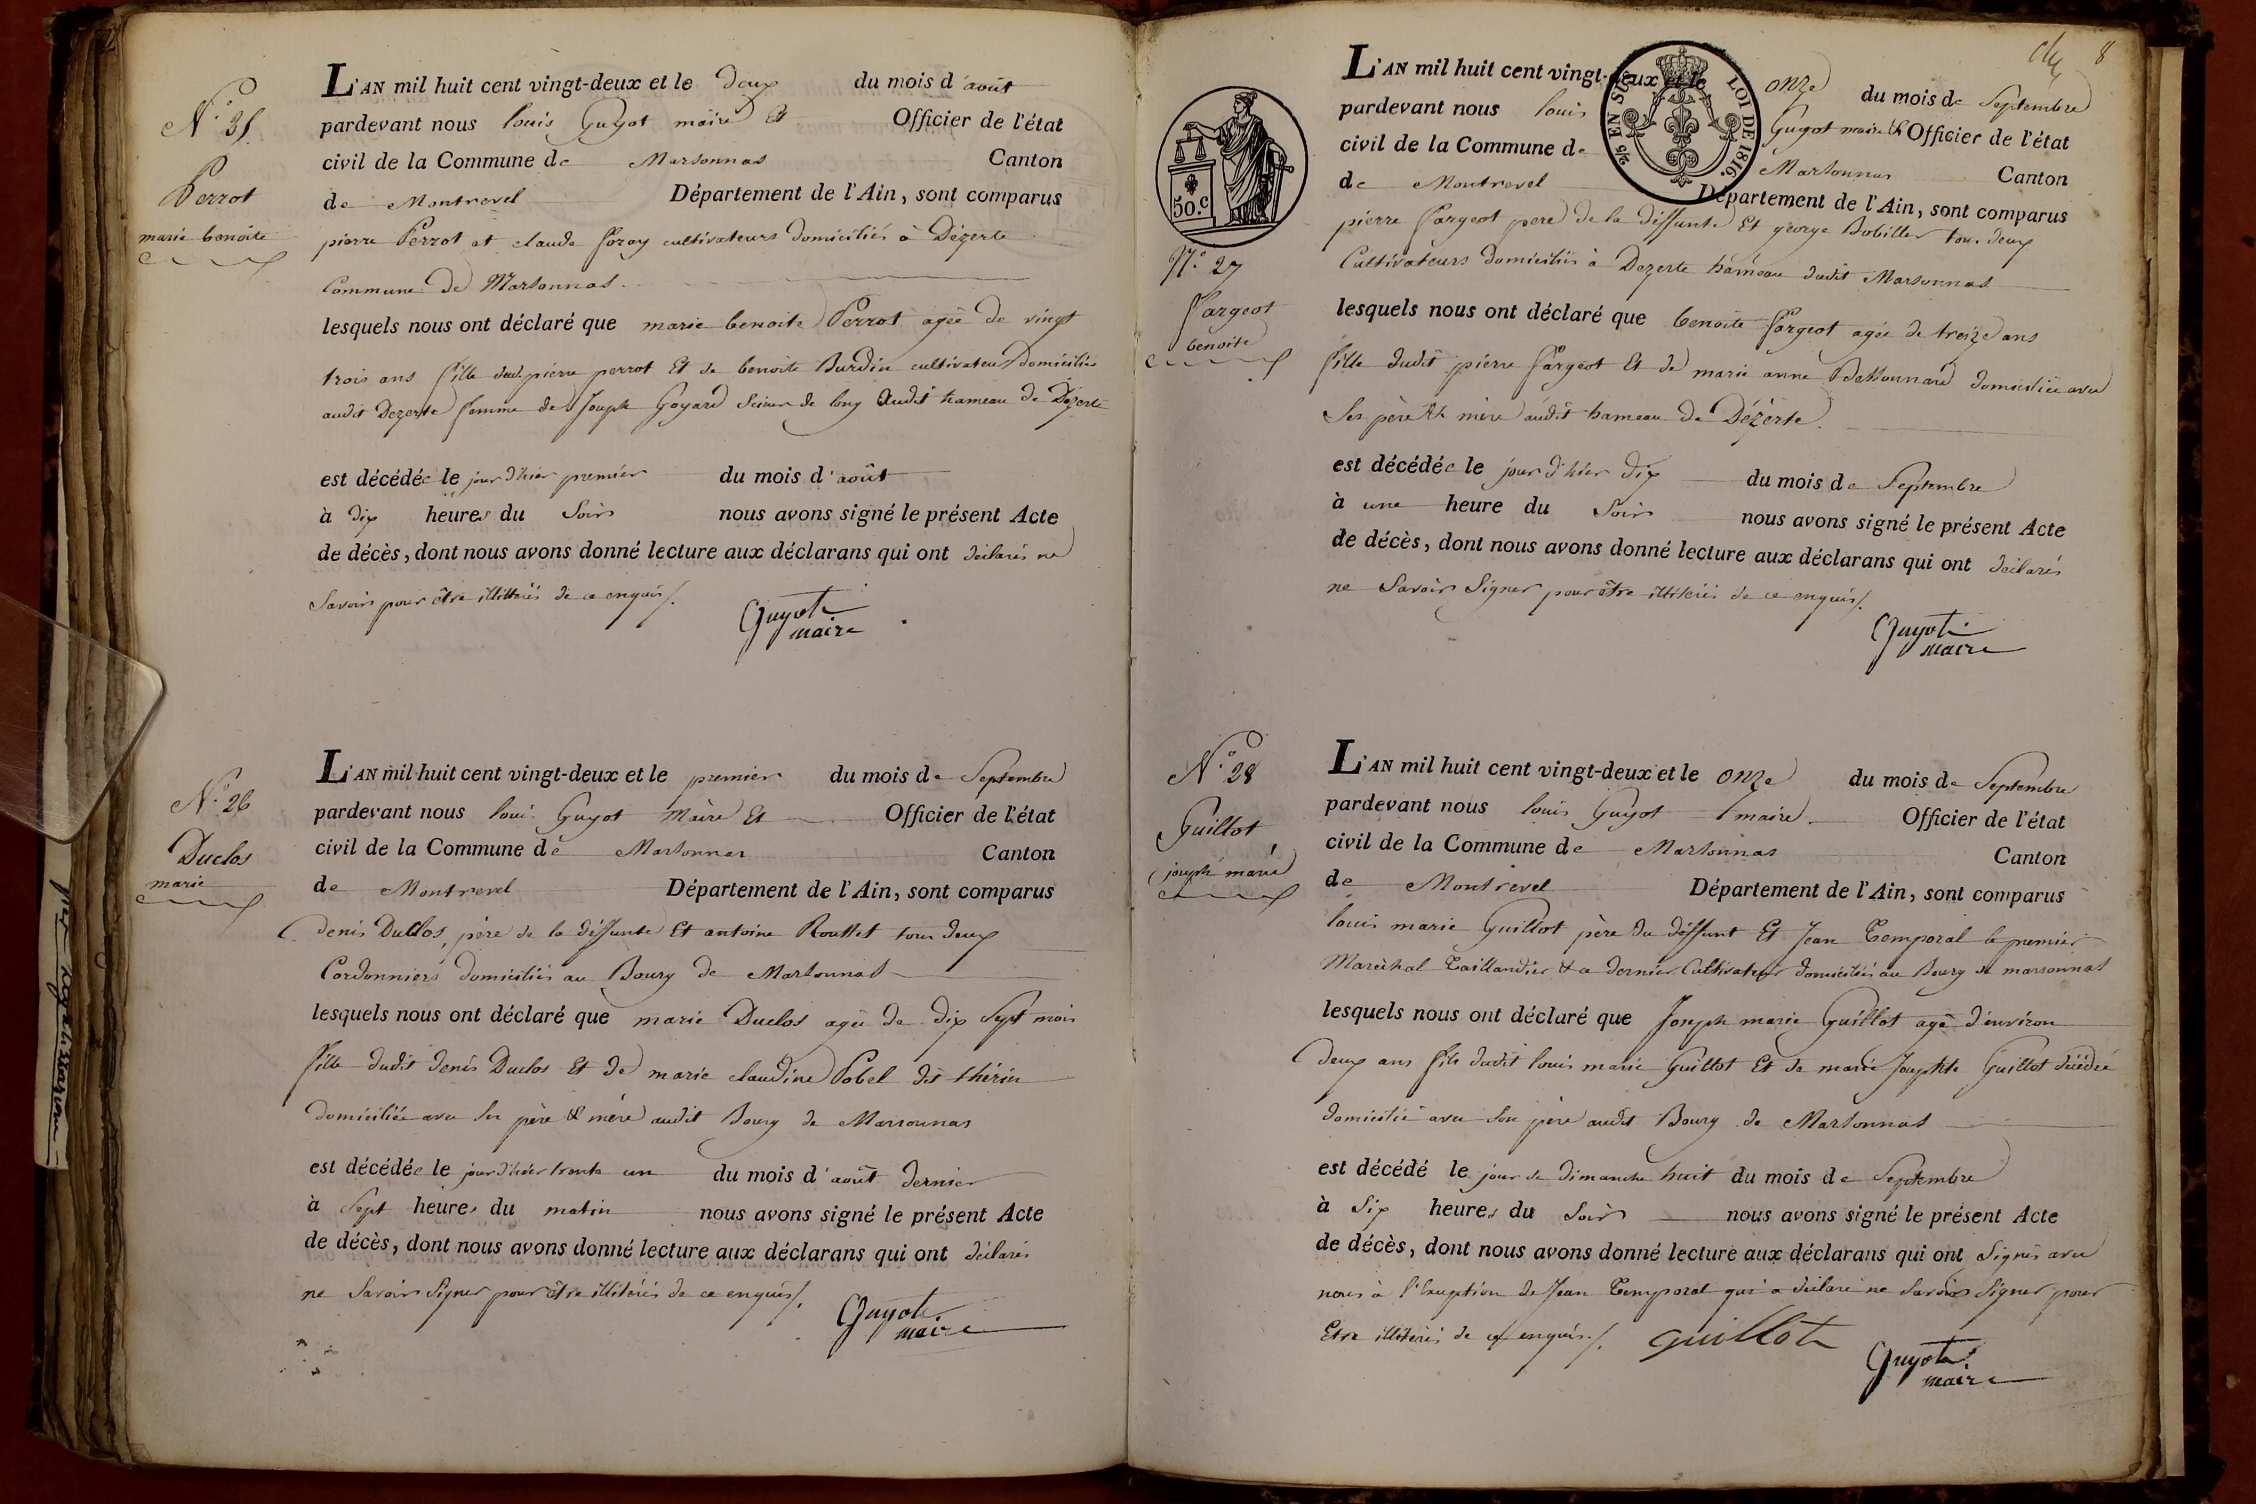 N.° 25.
Perrot
marie benoite
L'AN mil huit cent vingt-deux et le deux du mois d'août
pardevant nous louis Guyot maire Et Officier de l'état
civil de la Commune de Marsonnas Canton
de Montrevel Département de l'Ain, sont comparus
pierre Perrot et claude foray cultivateurs domiciliés à Dézerte
Commune de Marsonnas.
lesquels nous ont déclaré que marie benoite Perrot agée de vingt
trois ans fille dud. pierre perrot Et de benoite Burdin cultivateurs domiciliés
audit Dezerte femme de Joseph Goyard Scieur de long audit hameau de Dézerte
est décédée le jour d'hier premier du mois d'août
à dix heures du Soir nous avons signé le présent Acte
de décès, dont nous avons donné lecture aux déclarans qui ont déclarés ne
Savoir pour être illitérés de ce enquis ./.
Guyot
maire
N.° 26
Duclos
marie
L'AN mil huit cent vingt-deux et le premier du mois de Septembre
pardevant nous louis Guyot Maire Et Officier de l'état
civil de la Commune de Marsonnas Canton
de Montrevel Département de l'Ain, sont comparus
denis Duclos, père de la déffunte Et antoine Routtet tous deux
Cordonniers domiciliés au Bourg de Marsonnas
lesquels nous ont déclaré que marie Duclos agée de dix Sept mois
fille dudit denis Duclos Et de marie claudine Pobel dit thérin
domiciliée avec Ses père & mère audit Bourg de Marsonnas
est décédée le jour d'hier trente un du mois d'août dernier
à Sept heures du matin nous avons signé le présent Acte
de décès, dont nous avons donné lecture aux déclarans qui ont déclarés
ne Savoir Signer pour être illitérés de ce enquis ./.
Guyot
maire
8
50.C
25/c EN SUS
LOI DE 1816.
N.° 27
fargeot
benoite
L'AN mil huit cent vingt-deux et le onze du mois de Septembre
pardevant nous louis Guyot maire & Officier de l'état
civil de la Commune de Marsonnas Canton
de Montrevel Département de l'Ain, sont comparus
pierre fargeot père de la déffunte Et george Bobillon tous deux
Cultivateurs domiciliés à Dezerte hameau dudit Marsonnas
lesquels nous ont déclaré que benoite fargeot agée de treize ans
fille dudit pierre fargeot Et de marie anne domiciliée avec
Ses père & mère audit hameau de Dézerte.
est décédée le jour d'hier dix du mois de Septembre
à une heure du Soir nous avons signé le présent Acte
de décès, dont nous avons donné lecture aux déclarans qui ont déclarés
ne Savoir Signer pour être illitérés de ce enquis ./.
Guyot
maire
N.° 28
Guillot,
joseph marie
L'AN mil huit cent vingt-deux et le onze du mois de Septembre
pardevant nous louis Guyot maire Officier de l'état
civil de la Commune de Marsonnas Canton
de Montrevel Département de l'Ain, sont comparus
louis marie Guillot père du déffunt Et Jean Temporal le premier
Maréchal Taillandier & ce dernier Cultivateur domiciliés au Bourg de marsonnas
lesquels nous ont déclaré que Joseph marie Guillot agé d'environ
deux ans fils dudit louis marie Guillot Et de marie Josephte Guillot décédée
domicilié avec Son père audit Bourg de Marsonnas
est décédé le jour de dimanche huit du mois de Septembre
à Six heures du Soir nous avons signé le présent Acte
de décès, dont nous avons donné lecture aux déclarans qui ont Signés avec
nous à l'Exception de Jean Temporal qui a déclaré ne Savoir Signer pour
Etre illitérés de ce enquis ./. Guillot
Guyot
maire